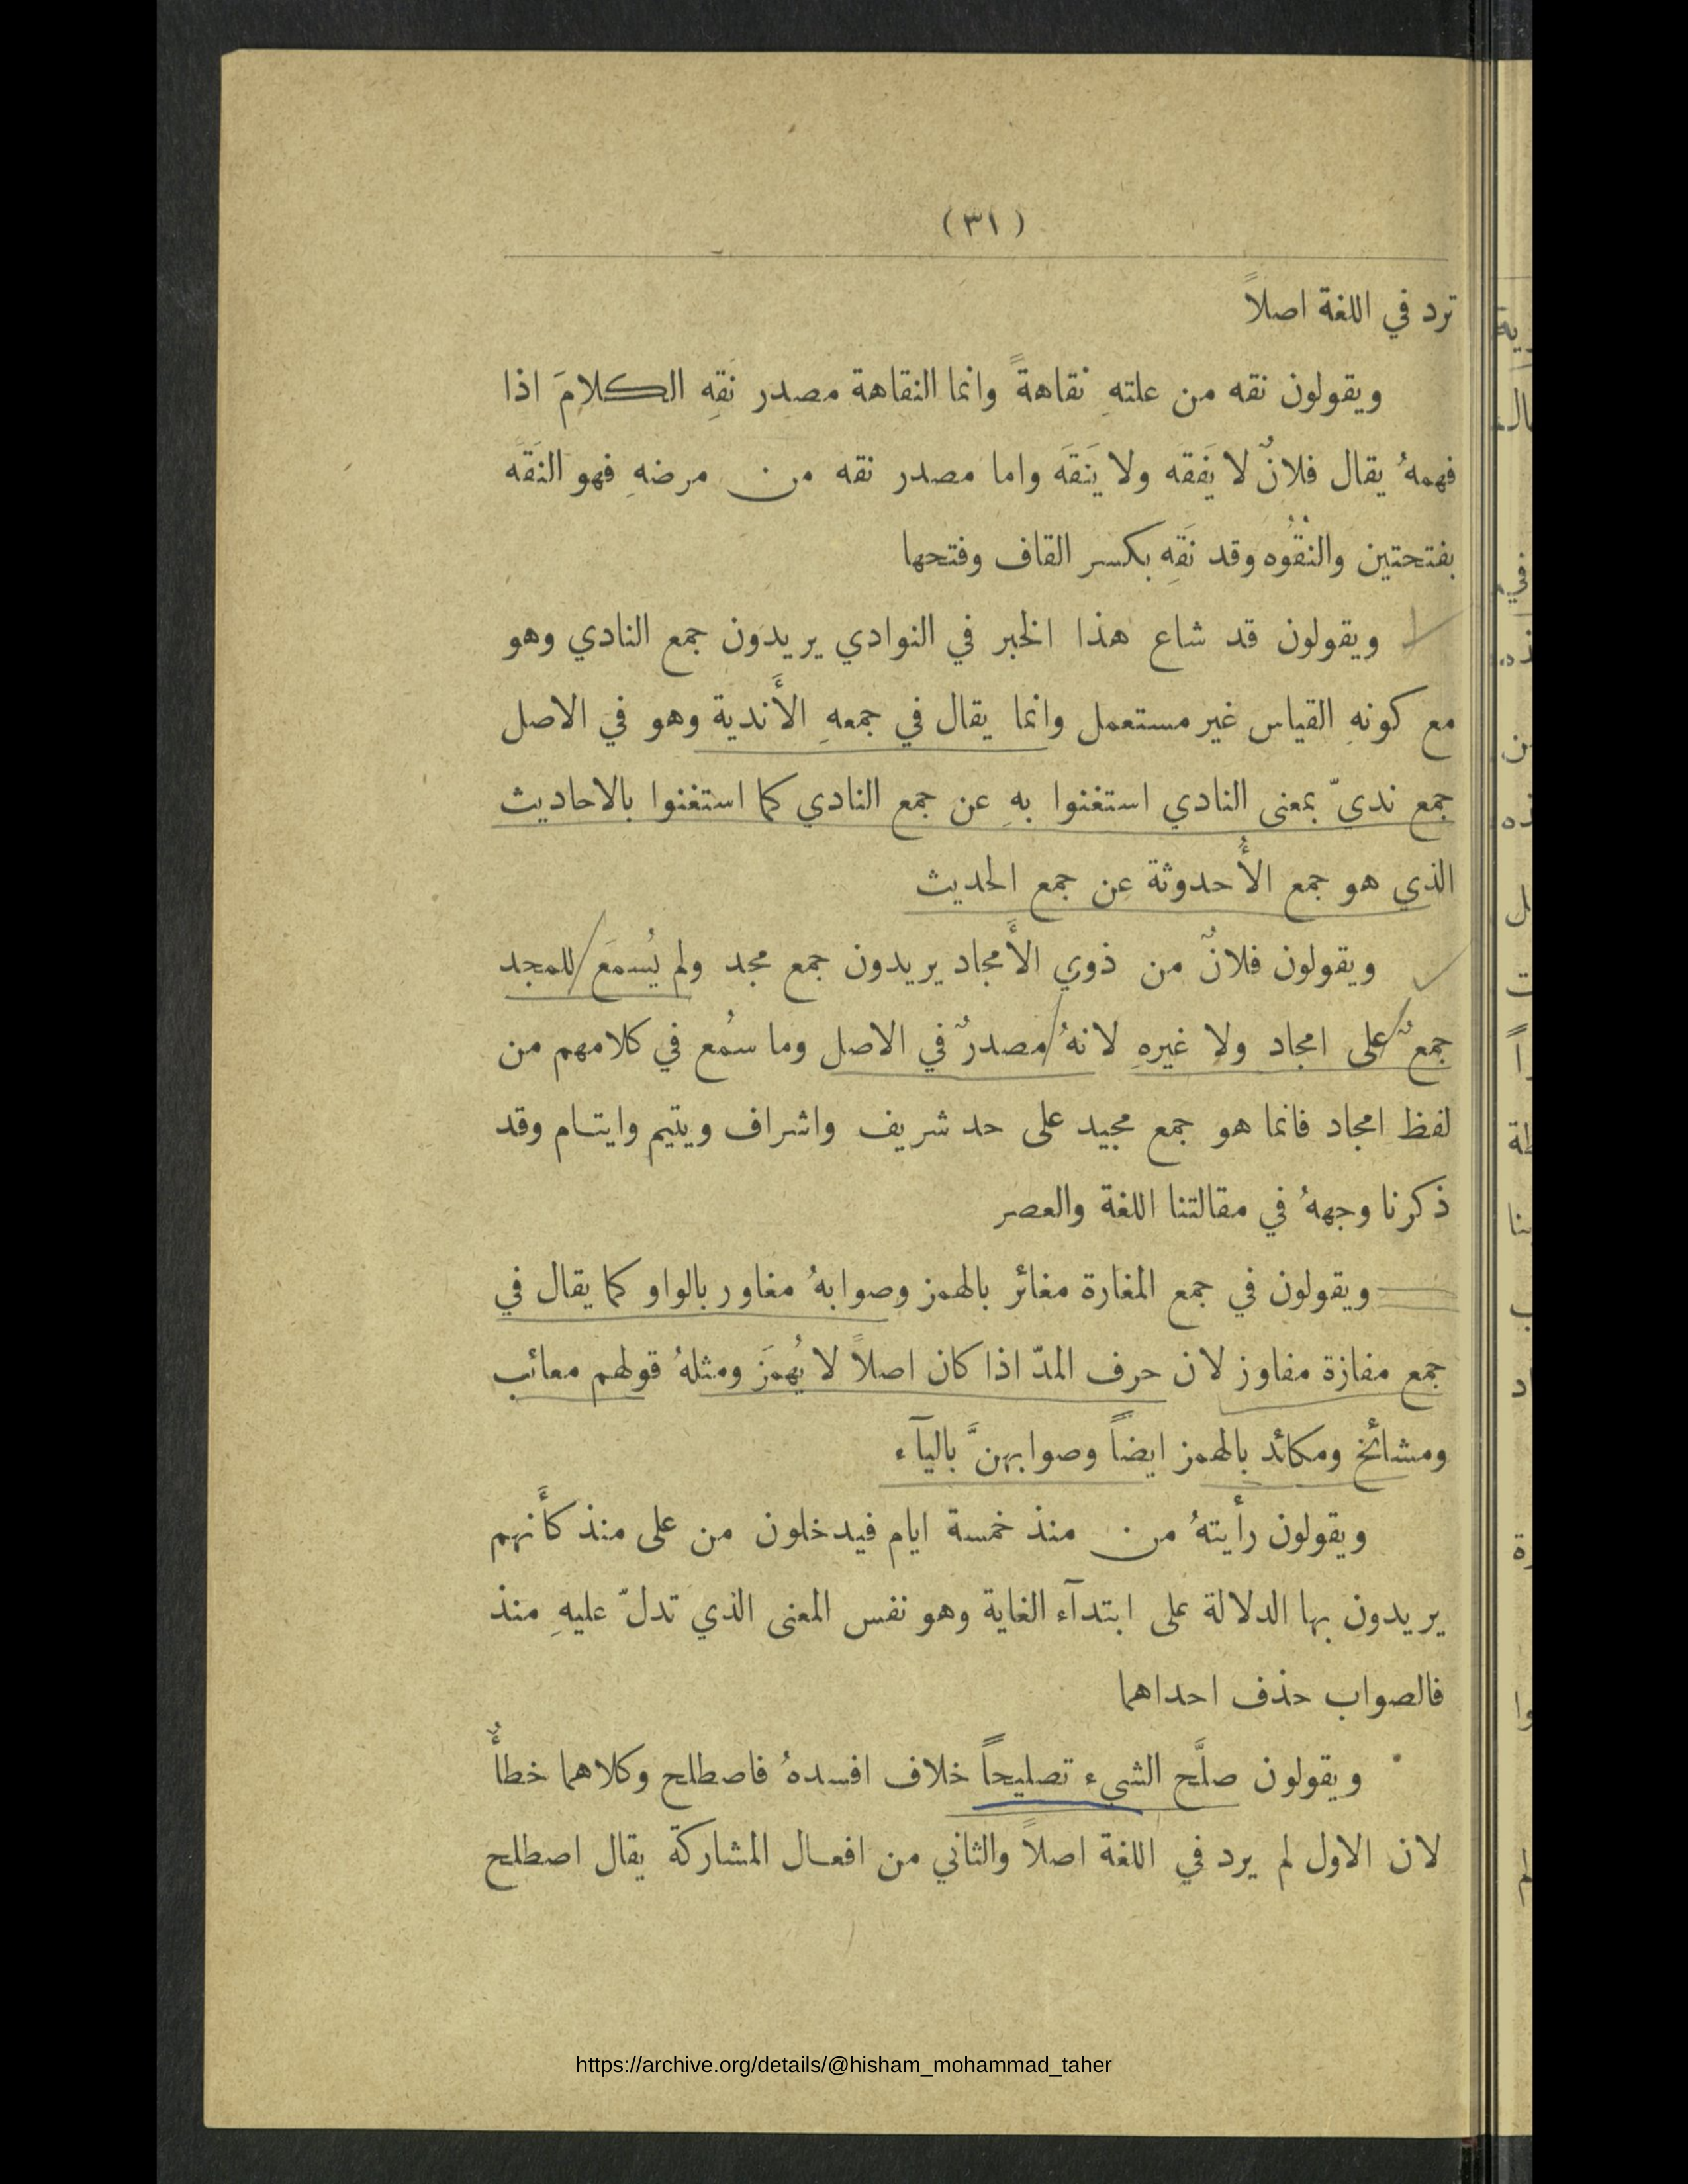 (٣١)
ترد في اللغة اصلاً
ويقولون نقه من علتهِ نقاهةً وانما النقاهة مصدر نَقِهِ الكلامَ اذا
فهمهُ يقال فلانٌ لا يَفقَه ولا يَنقَه واما مصدر نقه من مرضهِ فهو النَقَه
بفتحتين والنُقُوه وقد نَقِه بكسر القاف وفتحها
ويقولون قد شاع هذا الخبر في النوادي يريدون جمع النادي وهو
مع كونهِ القياس غير مستعمل وانما يقال في جمعهِ الأَندية وهو في الاصل
جمع نديّ بمعنى النادي استغنوا بهِ عن جمع النادي كما استغنوا بالاحاديث
الذي هو جمع الأُحدوثة عن جمع الحديث
ويقولون فلانٌ من ذوي الأَمجاد يريدون جمع مجد ولم يُسمَع للمجد
جمعٌ على امجاد ولا غيرهِ لانهُ مصدرٌ في الاصل وما سُمع في كلامهم من
لفظ امجاد فانما هو جمع مجيد على حد شريف واشراف ويتيم وايتام وقد
ذكرنا وجههُ في مقالتنا اللغة والعصر
ويقولون في جمع المغارة مغائر بالهمز وصوابهُ مغاور بالواو كما يقال في
جمع مفازة مفاوز لان حرف المدّ اذا كان اصلاً لا يُهمَز ومثلهُ قولهم معائب
ومشائخ ومكائد بالهمز ايضاً وصوابهنَّ باليآء
ويقولون رأيتهُ من منذ خمسة ايام فيدخلون من على منذ كأَنهم
يريدون بها الدلالة على ابتدآء الغاية وهو نفس المعنى الذي تدلّ عليهِ منذ
فالصواب حذف احداهما
ويقولون صلَّح الشيء تصليحاً خلاف افسدهُ فاصطلح وكلاهما خطأٌ
لان الاول لم يرد في اللغة اصلاً والثاني من افعال المشاركة يقال اصطلح
https://archive.org/details/@hisham_mohammad_taher